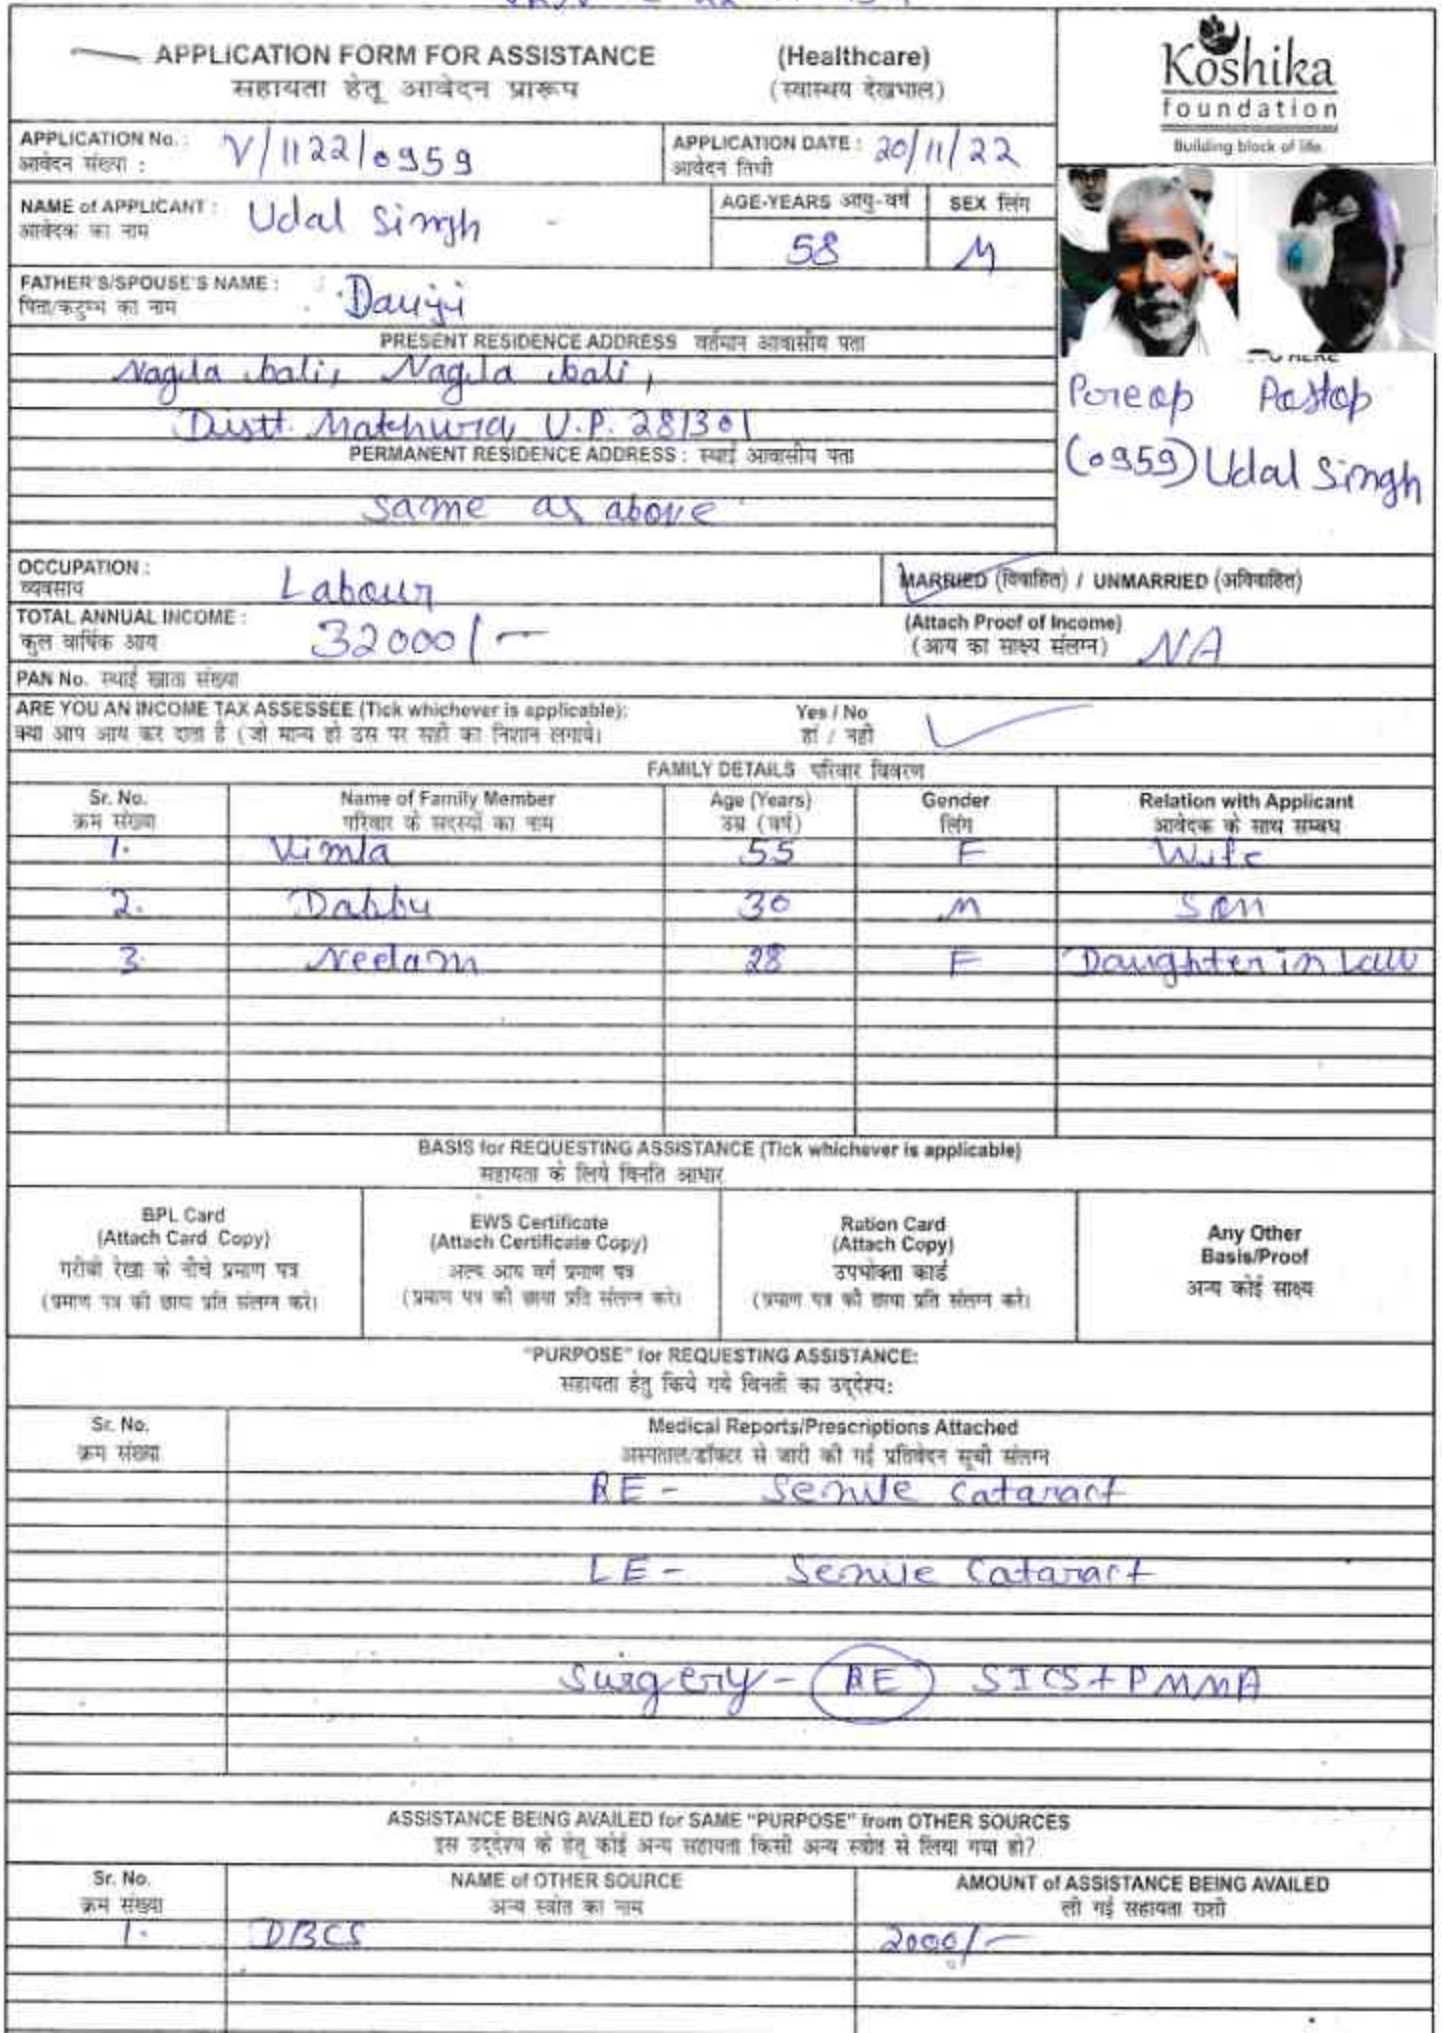 APPLICATION FORM FOR ASSISTANCE (Healthcare)
सहायता हेतू आवेदन प्रारूप (स्वास्थय देखभाल)
Koshika
foundation
Building block of life.
APPLICATION No. : V/1122/0959 APPLICATION DATE : 20/11/22
आवेदन संख्या : आवेदन तिथी
NAME of APPLICANT : Udal Singh AGE-YEARS आयु-वर्ष SEX लिंग
आवेदक का नाम 58 M
FATHER'S/SPOUSE'S NAME : Dauji
पिता/कटुम्भ का नाम
PRESENT RESIDENCE ADDRESS वर्तमान आवासीय पता
Nagla bali, Nagla bali,
Distt. Mathura, U.P. 281301
Preop Postop
(0959) Udal Singh
PERMANENT RESIDENCE ADDRESS : स्थाई आवासीय पता
same as above
OCCUPATION : Labour MARRIED (विवाहित) / UNMARRIED (अविवाहित)
व्यवसाय
TOTAL ANNUAL INCOME : 32000/- (Attach Proof of Income)
कुल वार्षिक आय (आय का साक्ष्य संलग्न) NA
PAN No. स्थाई खाता संख्या
ARE YOU AN INCOME TAX ASSESSEE (Tick whichever is applicable): Yes / No
क्या आप आय कर दाता है (जो मान्य हो उस पर सही का निशान लगाये। हां / नही
FAMILY DETAILS परिवार विवरण
Sr. No. Name of Family Member Age (Years) Gender Relation with Applicant
क्रम संख्या परिवार के सदस्यों का नाम उम्र (वर्ष) लिंग आवेदक के साथ सम्बध
1. Vimla 55 F Wife
2. Dabbu 30 M Son
3. Neelam 28 F Daughter in Law
BASIS for REQUESTING ASSISTANCE (Tick whichever is applicable)
सहायता के लिये विनति आधार
BPL Card
(Attach Card Copy)
गरीबी रेखा के नीचे प्रमाण पत्र
(प्रमाण पत्र की छाया प्रति संलग्न करे।
EWS Certificate
(Attach Certificate Copy)
अल्प आय वर्ग प्रमाण पत्र
(प्रमाण पत्र की छाया प्रति संलग्न करे।
Ration Card
(Attach Copy)
उपभोक्ता कार्ड
(प्रमाण पत्र की छाया प्रति संलग्न करे।
Any Other
Basis/Proof
अन्य कोई साक्ष्य
"PURPOSE" for REQUESTING ASSISTANCE:
सहायता हेतु किये गये विनती का उद्देश्य:
Sr. No. Medical Reports/Prescriptions Attached
क्रम संख्या अस्पताल/डॉक्टर से जारी की गई प्रतिवेदन सूची संलग्न
RE - Senile Cataract
LE - Senile Cataract
Surgery - RE SICS + PMMA
ASSISTANCE BEING AVAILED for SAME "PURPOSE" from OTHER SOURCES
इस उद्देश्य के हेतू कोई अन्य सहायता किसी अन्य स्त्रोत से लिया गया हो?
Sr. No. NAME of OTHER SOURCE AMOUNT of ASSISTANCE BEING AVAILED
क्रम संख्या अन्य स्त्रोत का नाम ली गई सहायता राशी
1. DBCS 2000/-